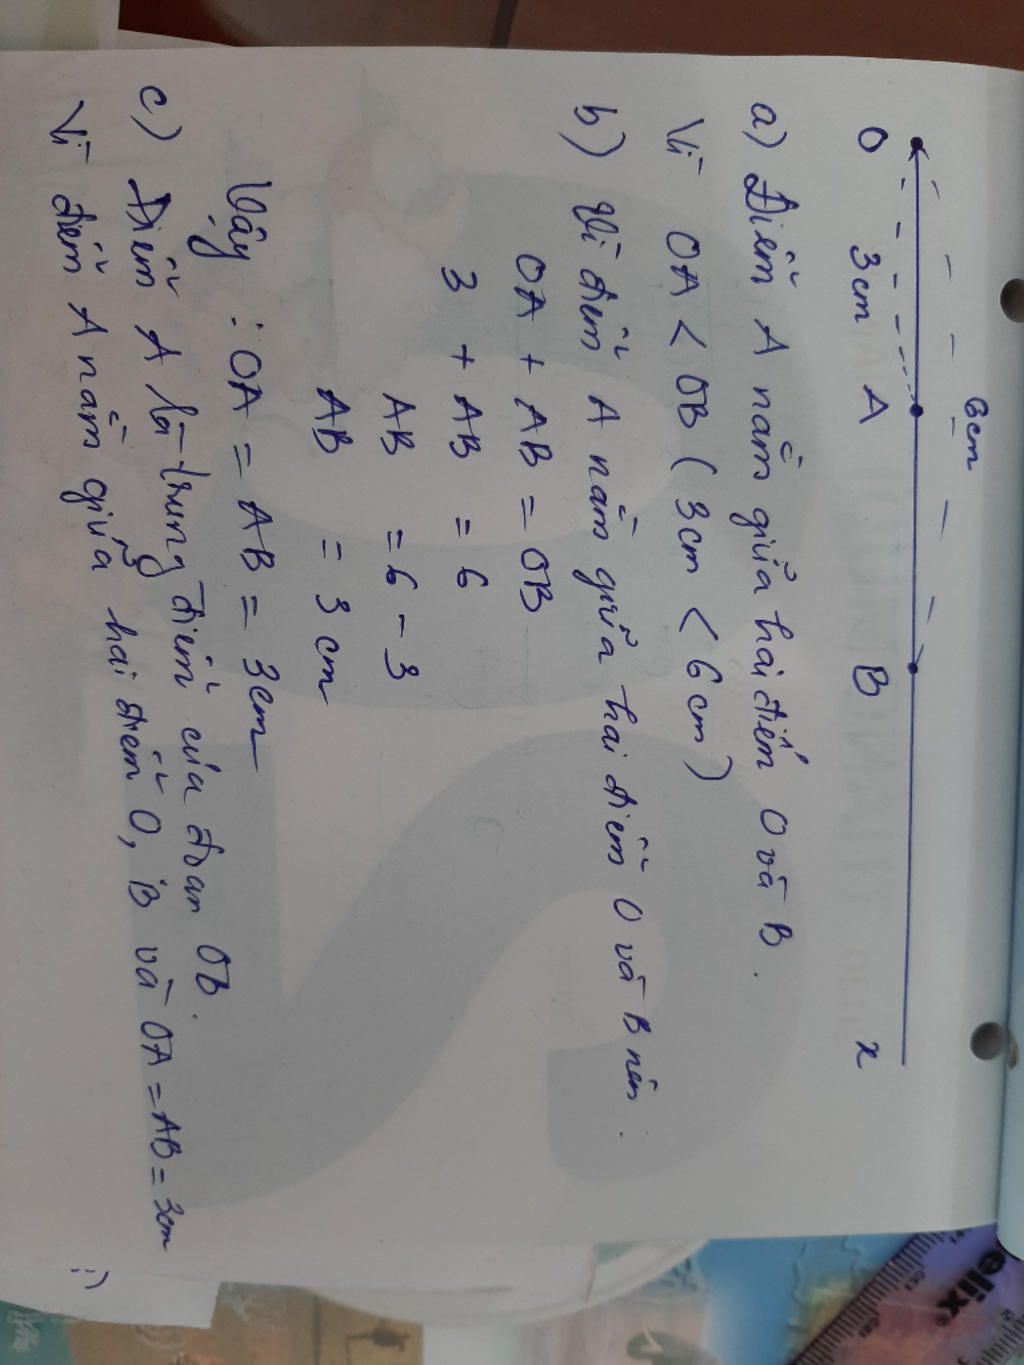 6cm
O 3cm A B x
a) Điểm A nằm giữa hai điểm O và B.
Vì OA < OB ( 3cm < 6cm )
b) Vì điểm A nằm giữa hai điểm O và B nên :
OA + AB = OB
3 + AB = 6
AB = 6 - 3
AB = 3 cm
Vậy : OA = AB = 3cm
c) Điểm A là trung điểm của đoạn OB.
Vì điểm A nằm giữa hai điểm O, B và OA = AB = 3cm
elix